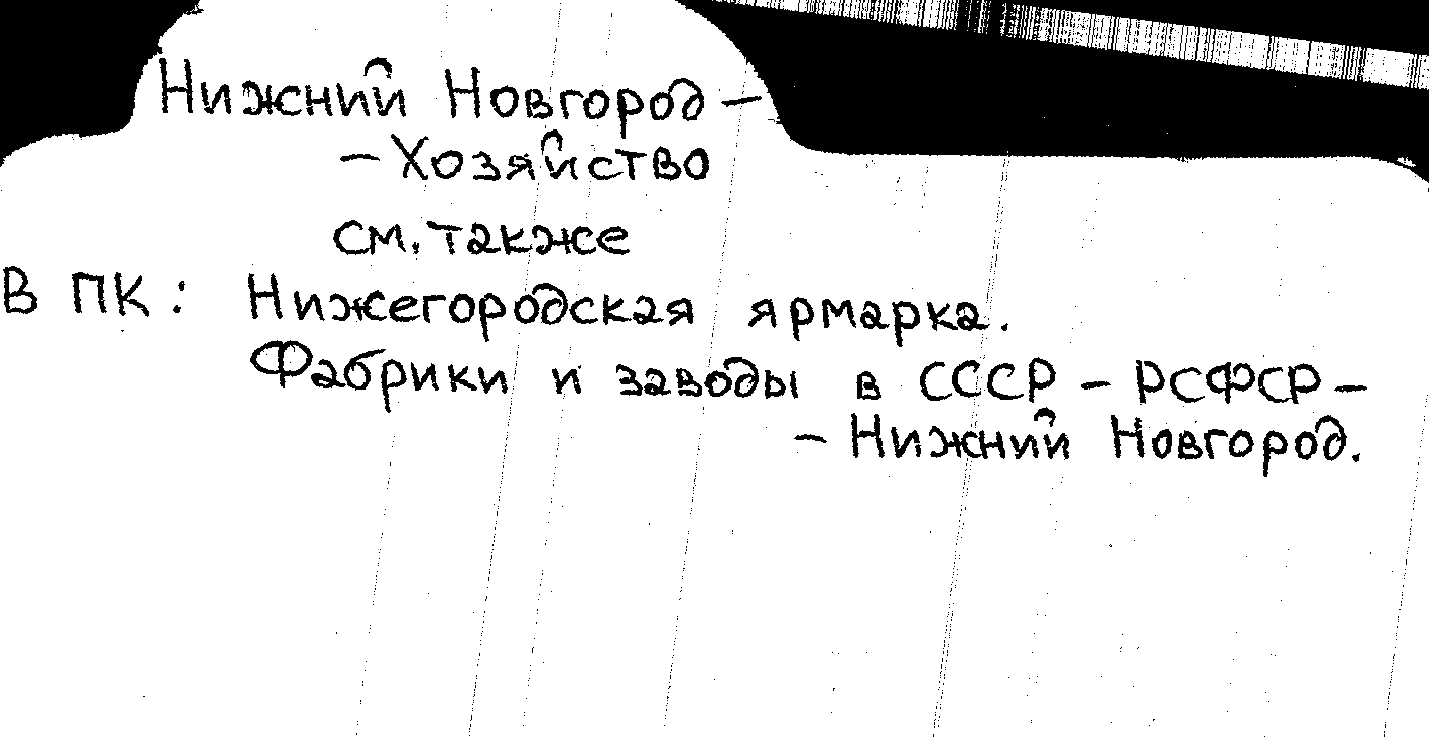 Нижний Новгород –
– Хозяйство
см. также
В ПК: Нижегородская ярмарка.
Фабрики и заводы в СССР – РСФСР –
– Нижний Новгород.